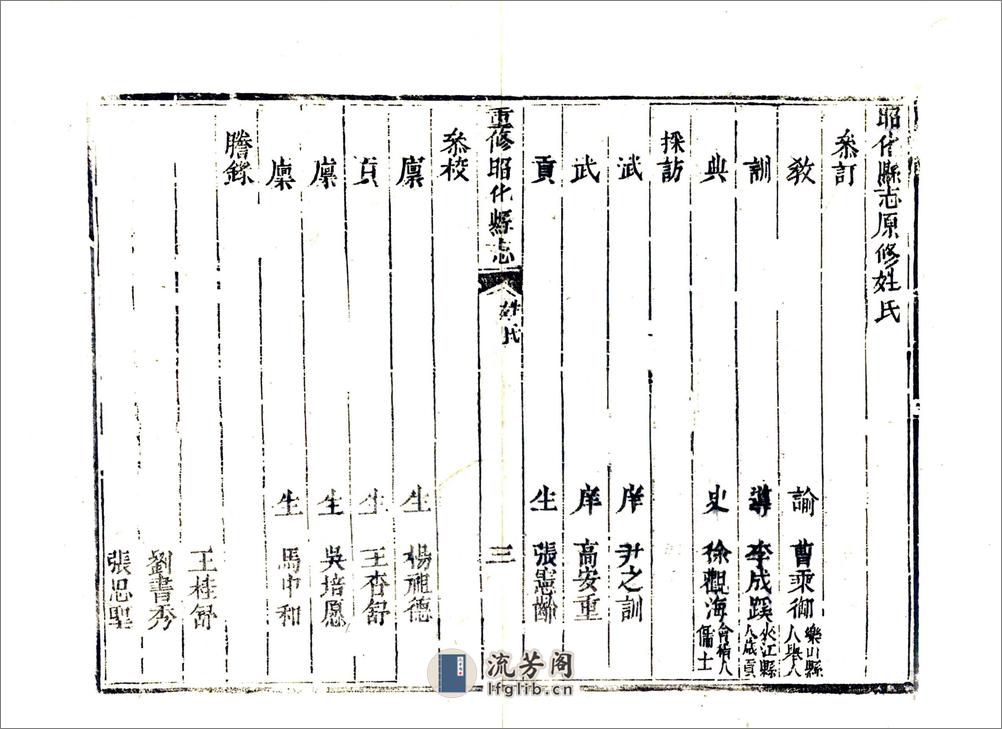 昭化縣志原修姓氏
叅訂
教諭 曹乘御 樂山縣人舉人
訓導 李成蹊 夾江縣人歲貢
典史 徐觀海 會稽人儒士
採訪
武庠 尹之訓
武庠 高安重
貢生 張憲齡
重修昭化縣志 姓氏 三
叅校
廪生 楊 德
貢生 王杏舒
廪生 吳培愿
廪生 馬中和
謄錄
王桂舒
劉書秀
張思聖
流芳阁
lfglib.cn